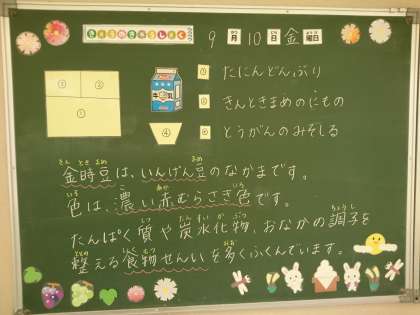 きょうのきゅうしょく
9月10日金曜日
① ②
③
牛乳
④
① たにんどんぶり
② きんときまめのにもの
③ とうがんのみそしる
金時豆は、いんげん豆のなかまです。
色は、濃い赤むらさき色です。
たんぱく質や炭水化物、おなかの調子を
整える食物せんいを多くふくんでいます。